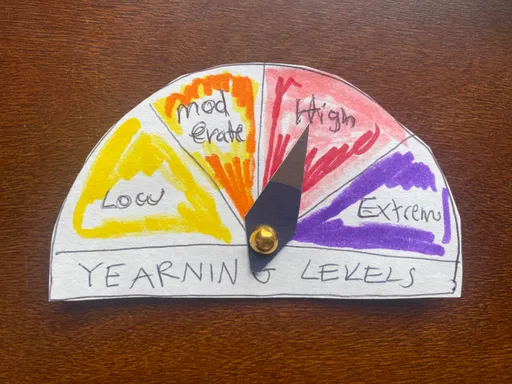 Low
mod
erate
High
Extrem
YEARNING LEVELS